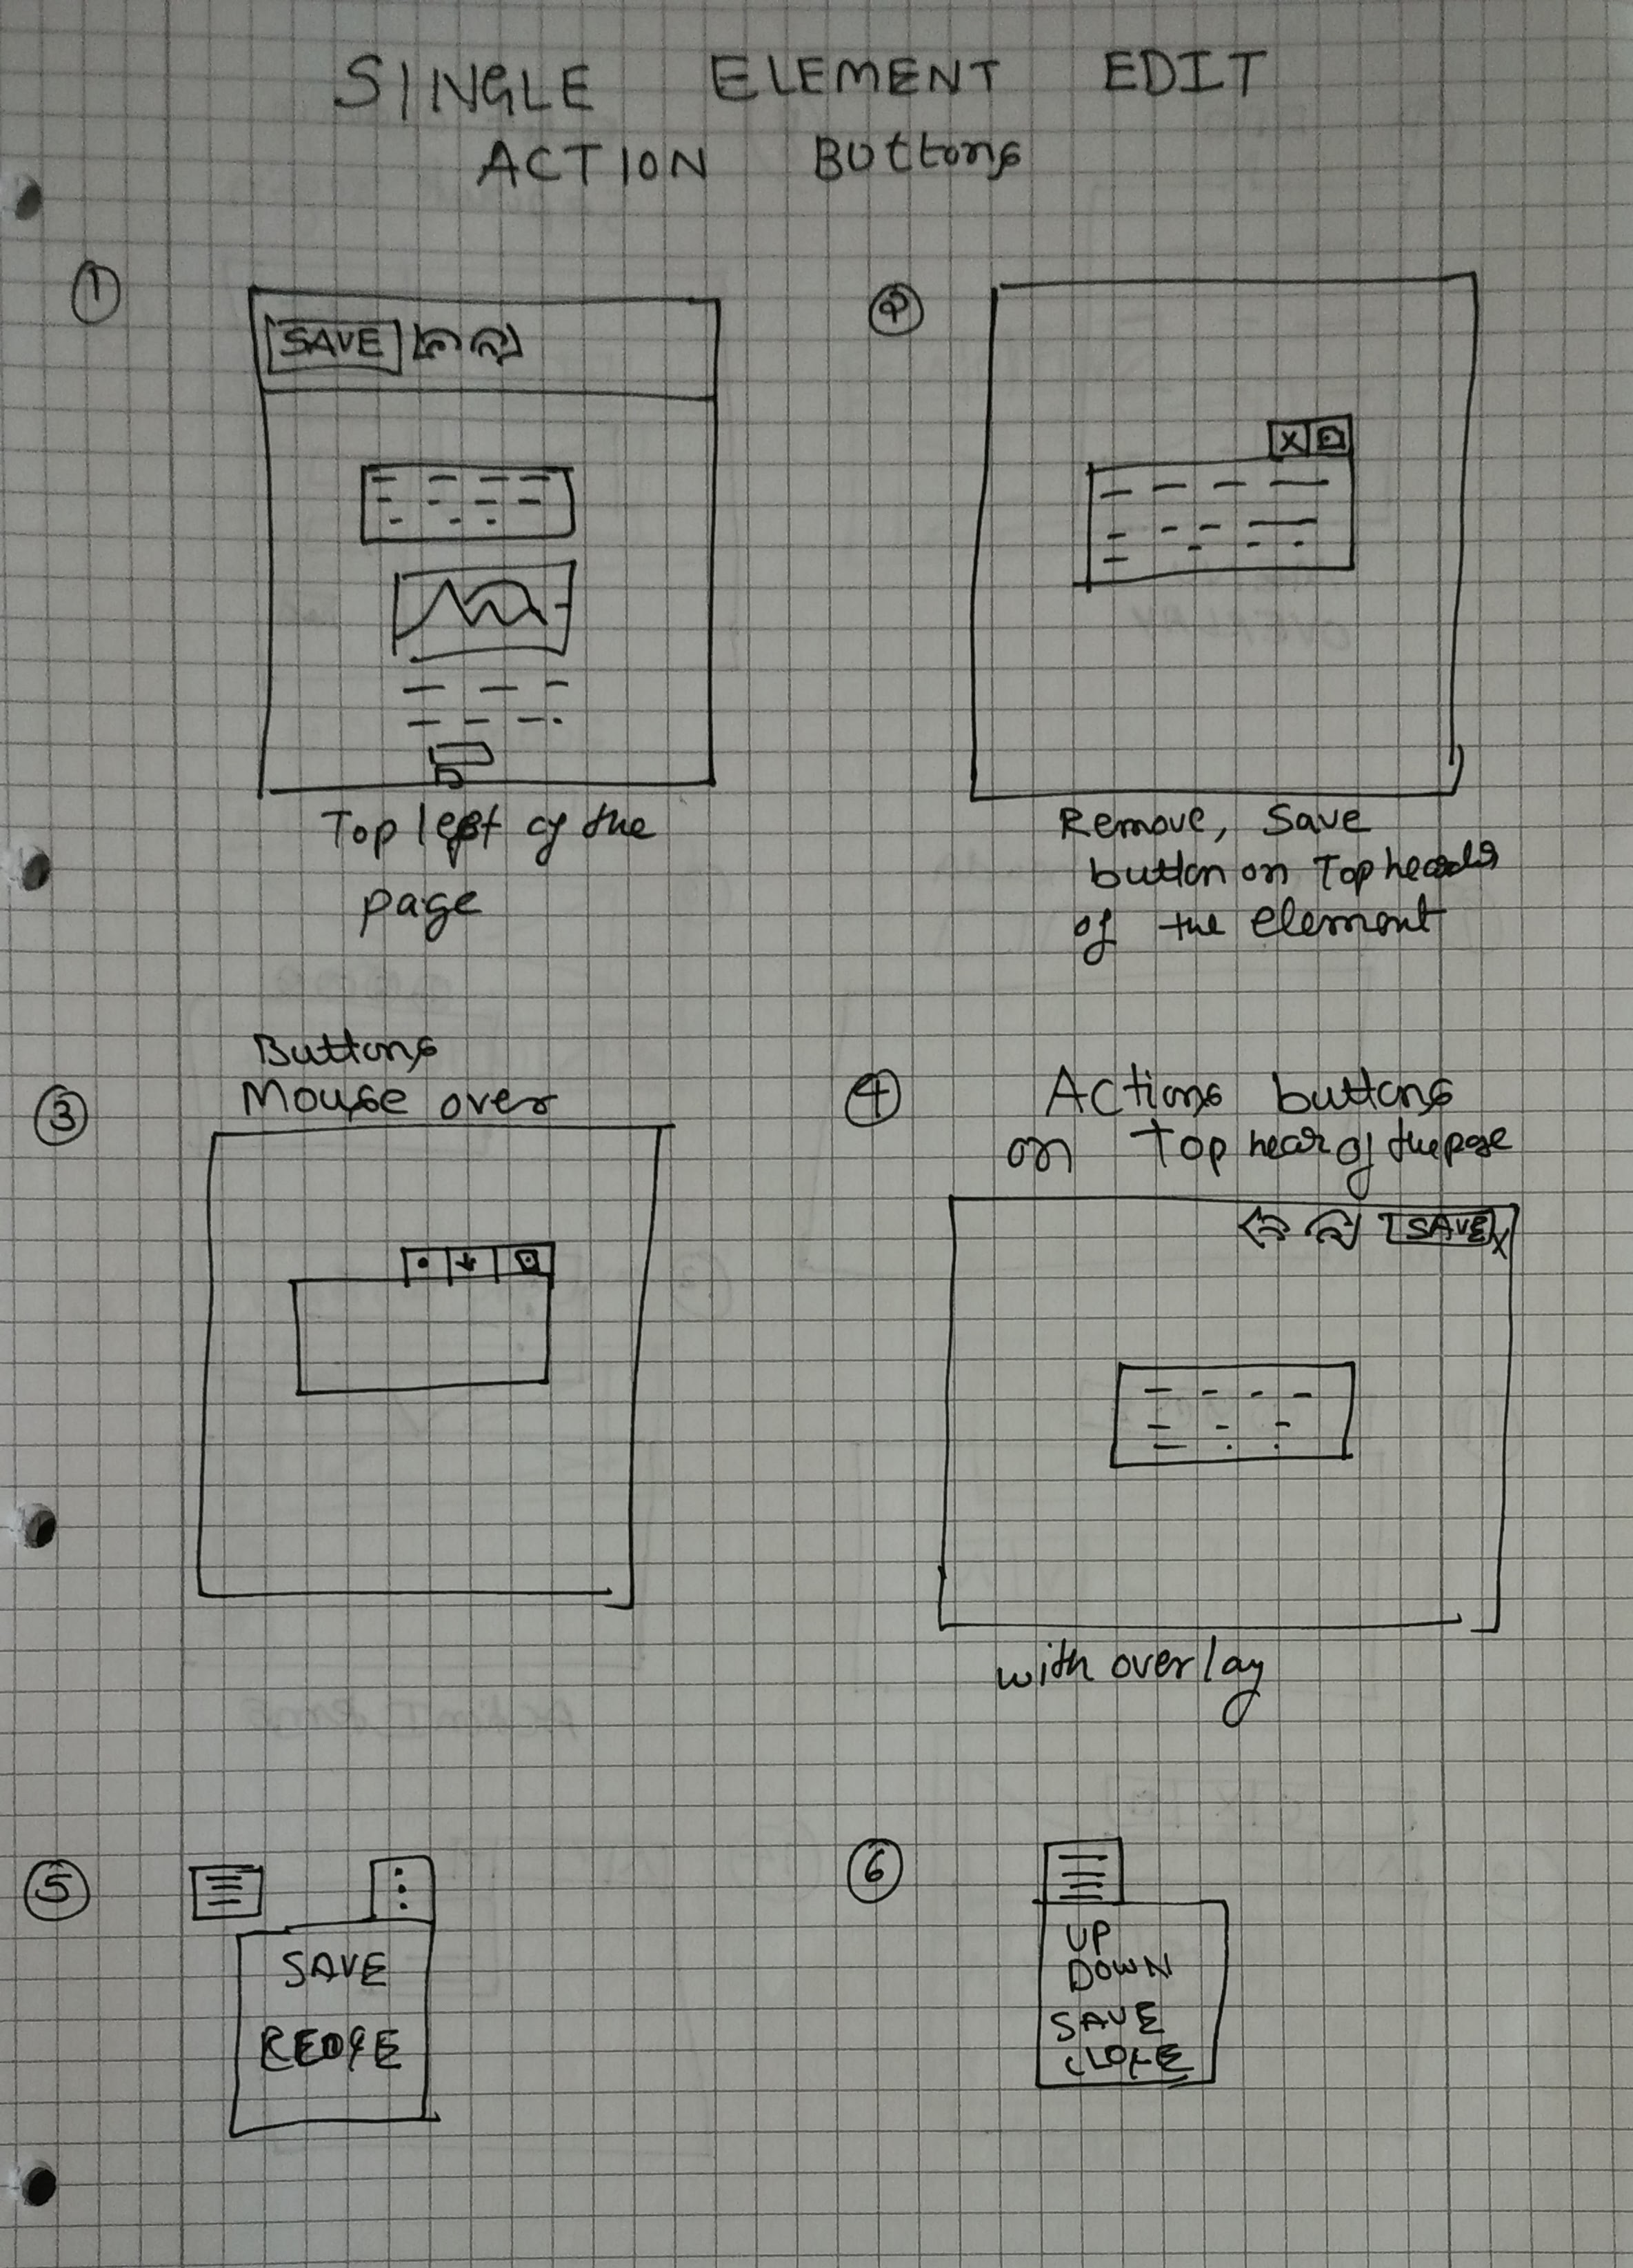 SINGLE ELEMENT EDIT
ACTION Buttons
1
SAVE
Top left of the
page
2
X
Remove, Save
button on Top header
of the element
3
Buttons
Mouse over
4
Actions buttons
on Top hear of the page
SAVE X
with overlay
5
SAVE
6
UP
DOWN
SAVE
CLOSE